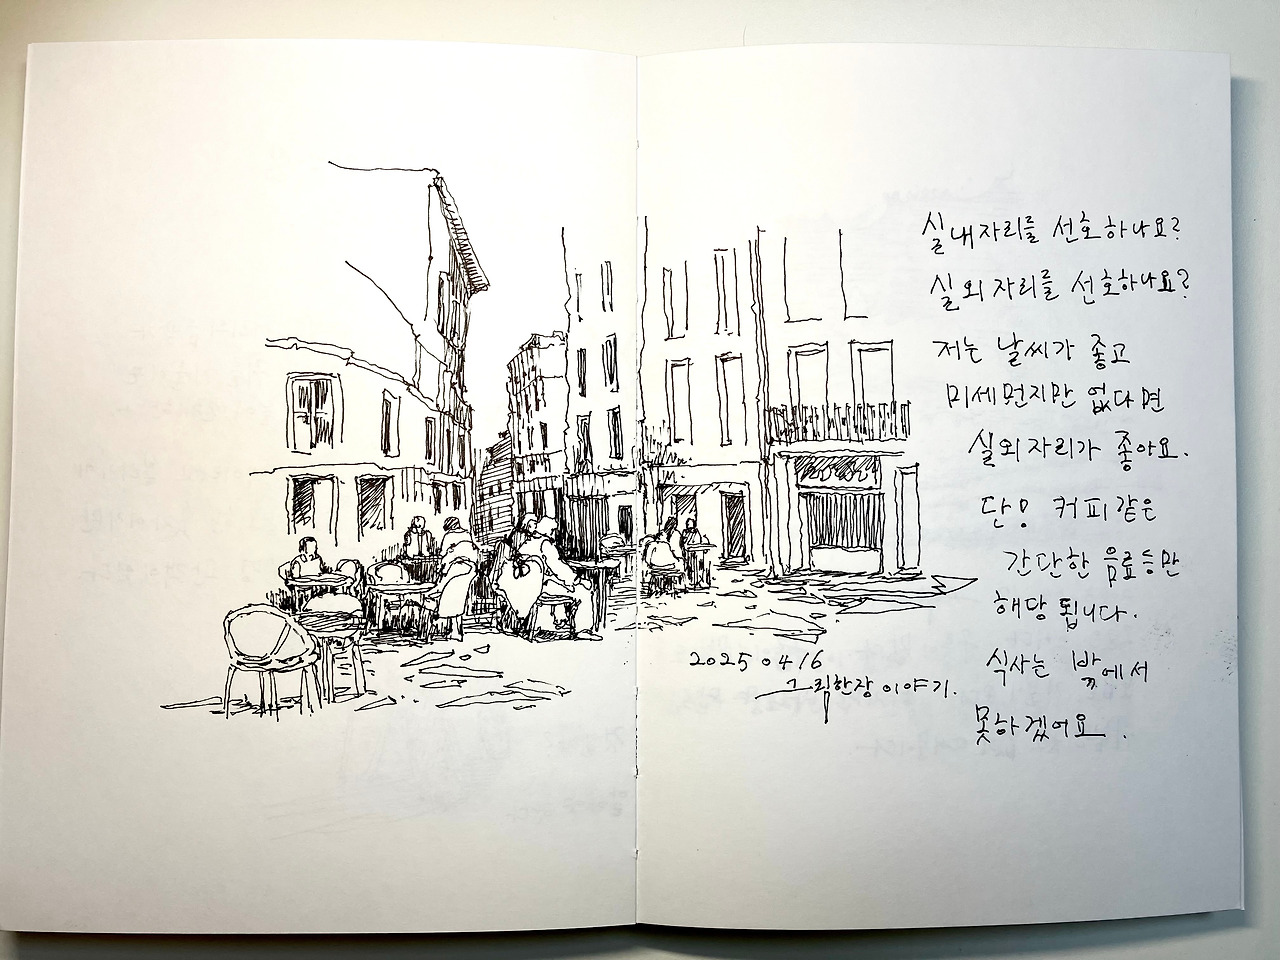 실내자리를 선호하나요?
실외자리를 선호하나요?
저는 날씨가 좋고
미세먼지만 없다면
실외자리가 좋아요.
단, 커피같은
간단한 음료수만
해당됩니다.
식사는 밖에서
못하겠어요.
2025 04 16
그림한장이야기.